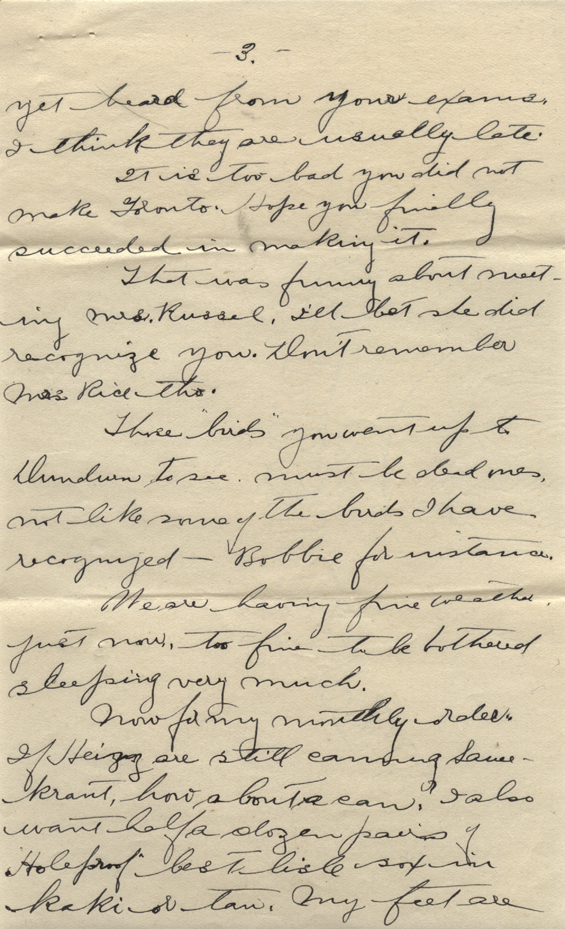 - 3. -
yet heard from your exams.
I think they are usually late.
It is too bad you did not
make Toronto. Hope you finally
succeeded in making it.
That was funny about meet-
ing Mrs. Russel, I'll bet she did
recognize you. Don't remember
Mrs Rice tho.
Those "birds" you went up to
Dundurn to see. must be dead ones,
not like some of the birds I have
recognized - Bobbie for instance.
We are having fine weather,
just now, too fine to be bothered
sleeping very much.
Now for my monthly order.
If Heinz are still canning Saue-
krant, how about a can? I also
want half a dozen pairs of
"Holeproof" best lisle sox in
kaki or tan. My feet are